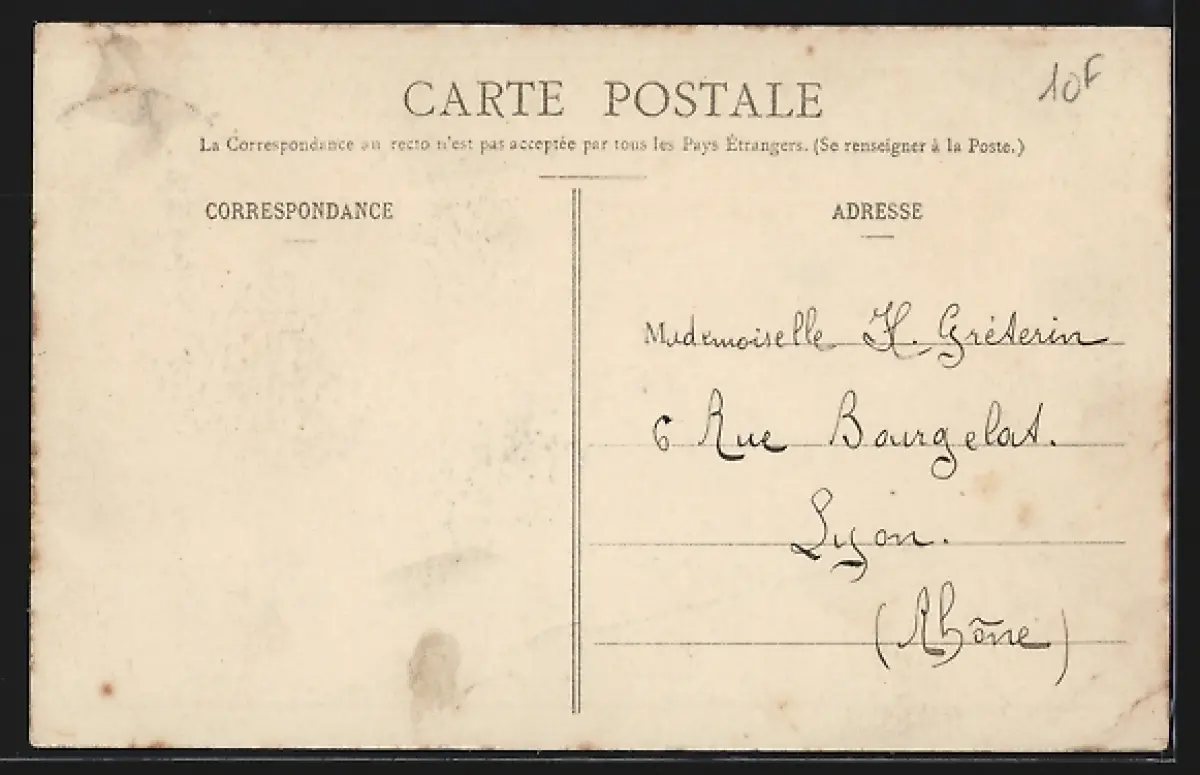 10F
CARTE POSTALE
La Correspondance au recto n'est pas acceptée par tous les Pays Étrangers. (Se renseigner à la Poste.)
CORRESPONDANCE
ADRESSE
Mademoiselle H. Gréterin
6 Rue Bourgelat.
Lyon.
(Rhône)